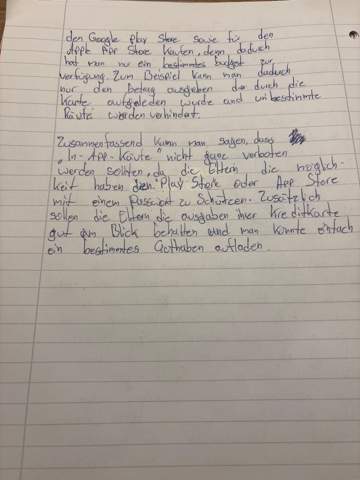 den Google Play Store sowie für den
Apple App Store kaufen, denn daduch
hat man nur ein bestimmtes budget zur
verfügung. Zum Beispiel kann man daduch
nur den betrag ausgeben der durch die
Karte aufgeleden wurde und unbestimmte
Käufe werden verhindert.
Zusammenfassend kann man sagen, dass
"In-App-Käufe" nicht ganz verboten
werden sollten, da die Eltern die möglich-
keit haben den Play Store oder App Store
mit einem Passwort zu Schützen. Zusätzlich
sollen die Eltern die ausgaben ihrer kreditkarte
gut im Blick behalten und man könnte einfach
ein bestimmtes Guthaben aufladen.